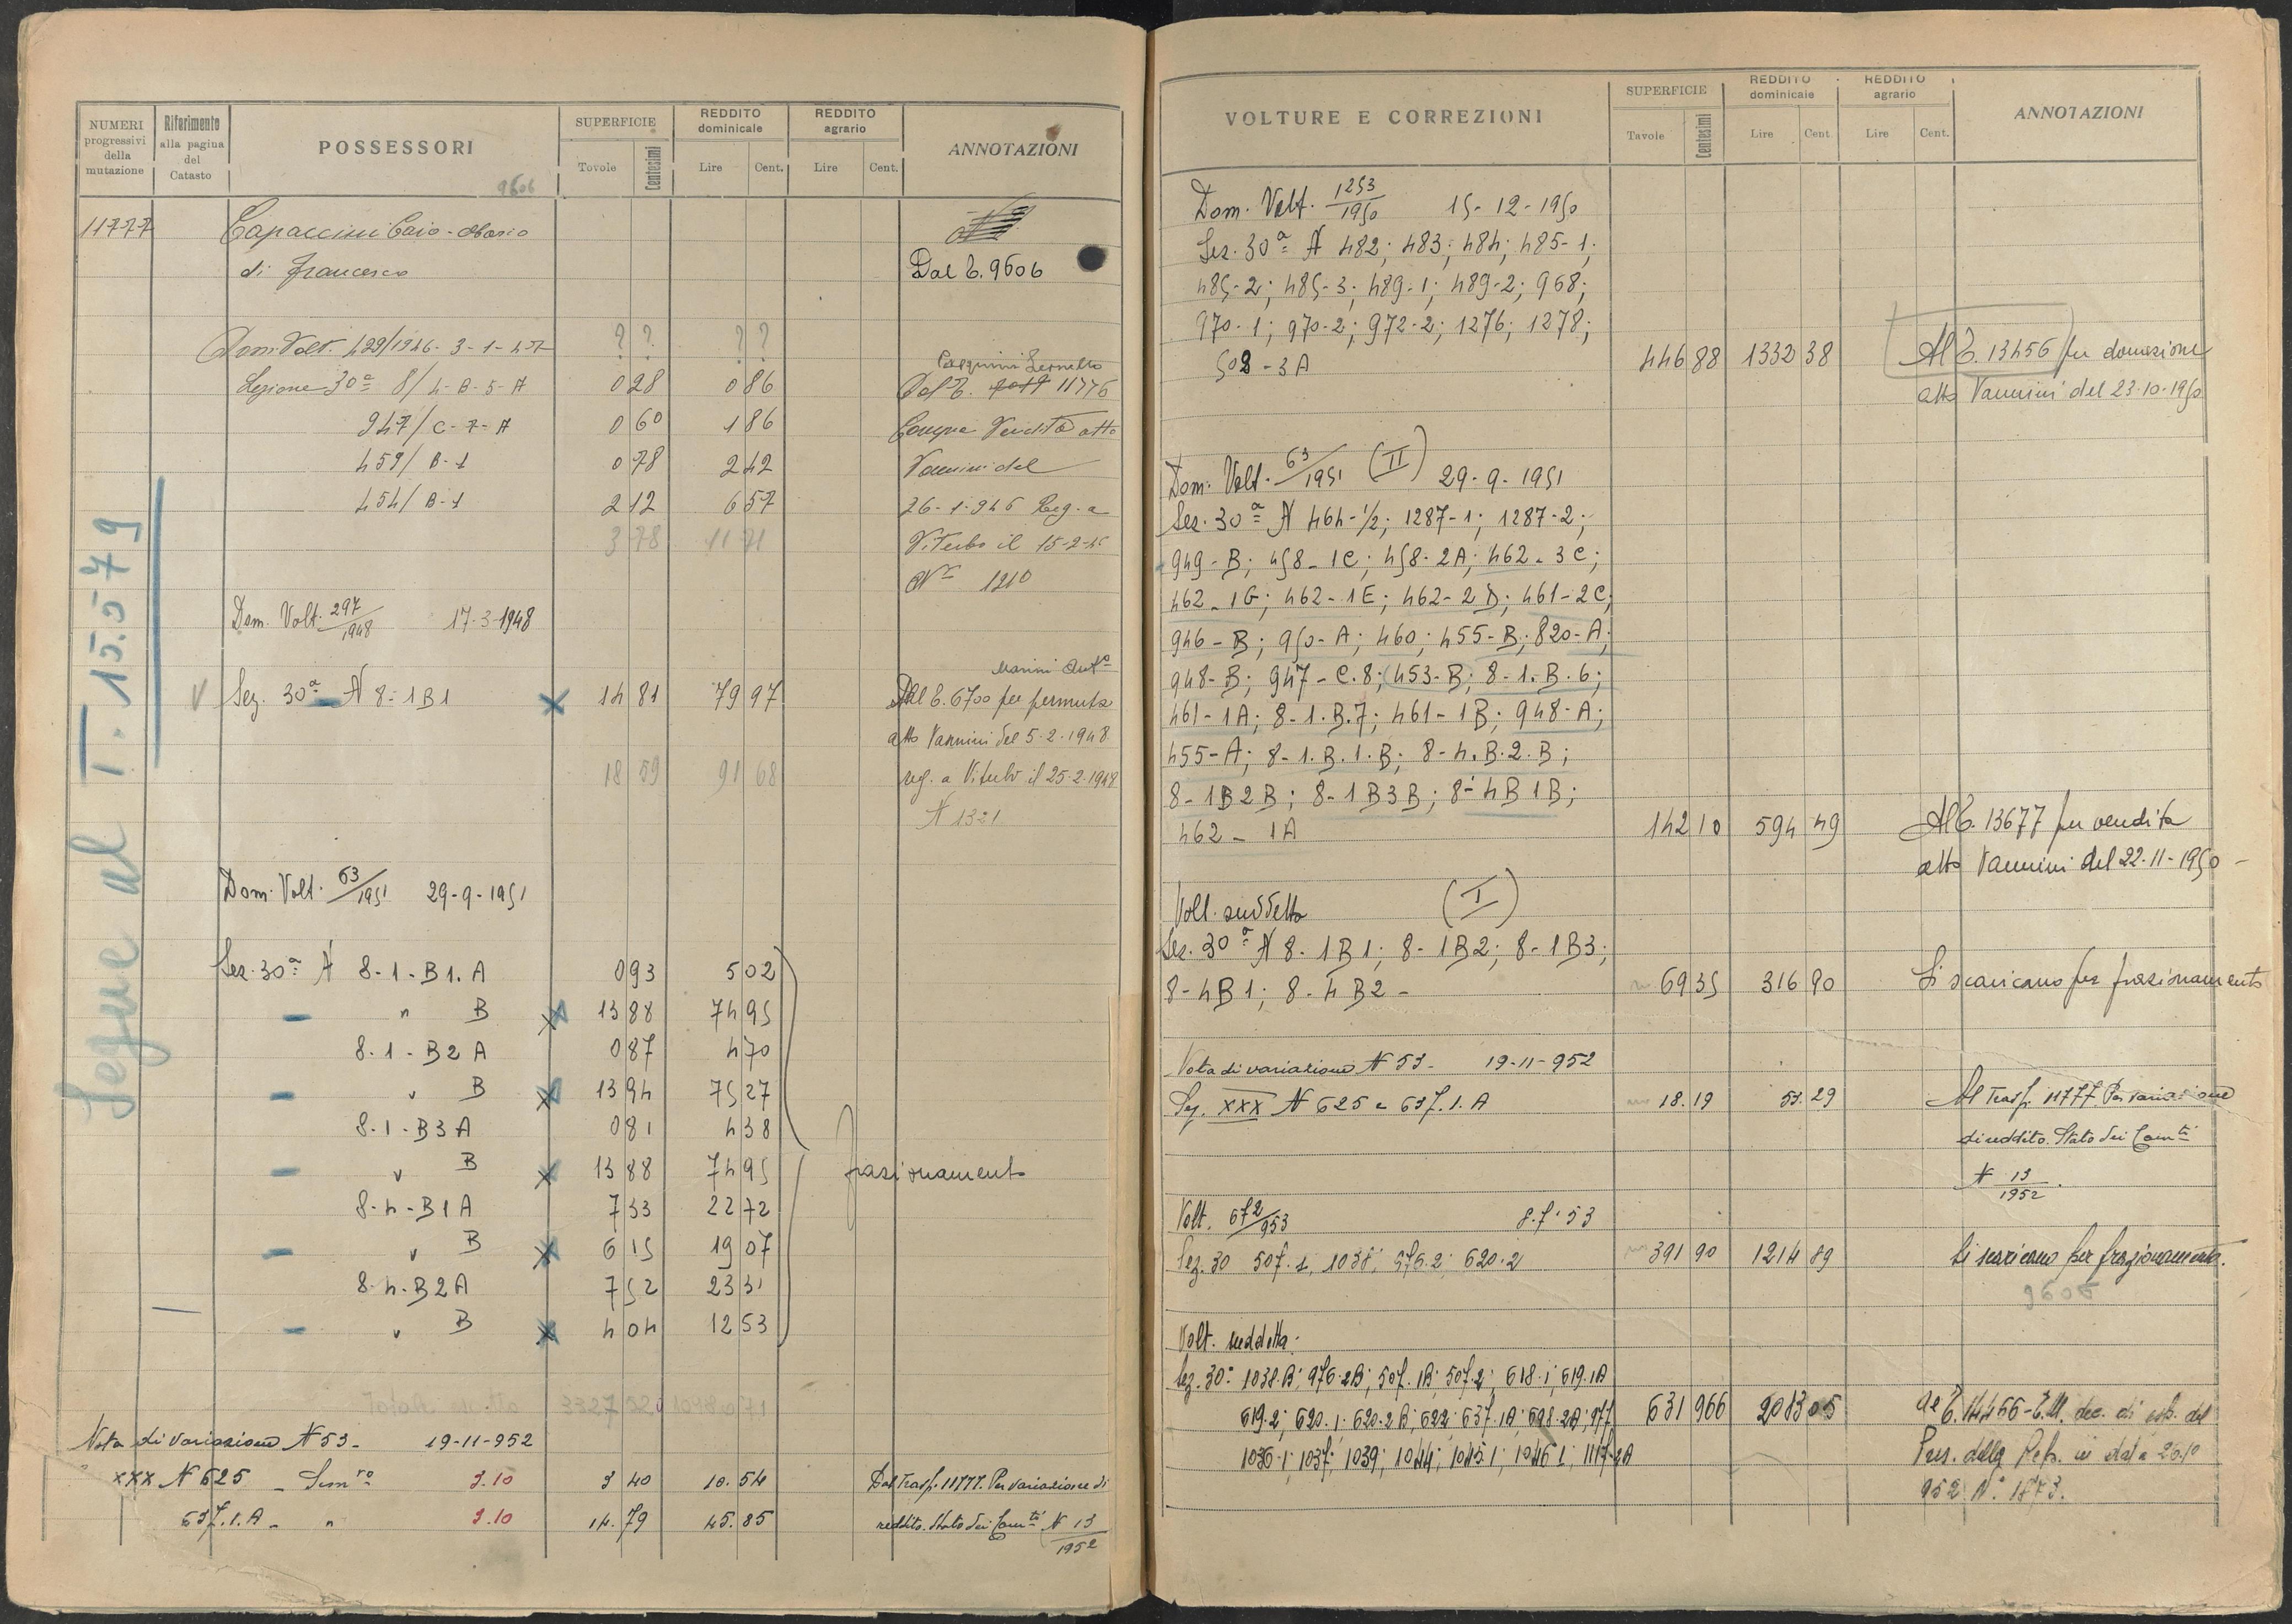 NUMERI progressivi della mutazione
Riferimento alla pagina del Catasto
POSSESSORI
9606
SUPERFICIE
Tavole Centesimi
REDDITO dominicale
Lire Cent.
REDDITO agrario
Lire Cent.
ANNOTAZIONI
11777 Capaccini Caio-Mario
di Francesco
Dal T. 9606
Dom. Volt. 429/1946 - 3-1-47 ? ? ? ?
Sezione 30ª 8/4-B-5-A 0 28 0 86 Dal T. 11776
947/C-7-A 0 60 1 86 Compra Vendita atto
459/B-1 0 78 2 42 Vannini del
454/B-1 2 12 6 57 26-1-946 Reg. a
3 78 11 71 Viterbo il 15-2-46
Nº 1210
Dom. Volt. 297/1948 17-3-1948
Marini
V Sez. 30ª N 8-1B1 14 81 79 97 Dal T. 6700 per permuta
atto Vannini del 5-2-1948
18 59 91 68 reg. a Viterbo il 25-2-1948
N 1321
Segue al T. 15.579
Dom. Volt. 63/1951 29-9-1951
Sez. 30ª N 8-1-B1.A 0 93 5 02
" B 13 88 74 95
8-1-B2 A 0 87 4 70
" B 13 94 75 27
8-1-B3 A 0 81 4 38
" B 13 88 74 95 frazionamento
8-4-B1 A 7 33 22 72
" B 6 15 19 07
8-4-B2 A 7 52 23 31
" B 4 04 12 53
Nota di variazione N 53 - 19-11-952
XXX N 625 - Sem.ro 3.10 3 40 10.54 Dal Trasf. 11777. Per variazione di
637.1.A - " 3.10 14.79 45.85 reddito. Stato dei Camti N 13/1952
VOLTURE E CORREZIONI
SUPERFICIE
Tavole Centesimi
REDDITO dominicale
Lire Cent.
REDDITO agrario
Lire Cent.
ANNOTAZIONI
Dom. Volt. 1253/1950 15-12-1950
Sez. 30ª N 482; 483; 484; 485-1;
485-2; 485-3; 489-1; 489-2; 968;
970-1; 970-2; 972-2; 1276; 1278;
508-3A 446 88 1332 38 Al T. 13456 per donazione
atto Vannini del 23-10-1950
Dom. Volt. 63/1951 (II) 29-9-1951
Sez. 30ª N 464-1/2; 1287-1; 1287-2;
949-B; 458-1C; 458-2A; 462-3C;
462-1G; 462-1E; 462-2D; 461-2C;
946-B; 950-A; 460; 455-B; 820-A;
948-B; 947-C.8; 453-B; 8-1.B.6;
461-1A; 8-1.B.7; 461-1B; 948-A;
455-A; 8-1.B.1.B; 8-4.B.2.B;
8-1B2B; 8-1B3B; 8-4B1B;
462-1A 142 10 594 49 Al T. 13677 per vendita
atto Vannini del 22-11-1950 -
Volt. suddetta (I)
Sez. 30ª N 8-1B1; 8-1B2; 8-1B3;
8-4B1; 8-4B2 - 69 35 316 90 Si scaricano per frazionamento
Nota di variazione N 53 - 19-11-952
Sez. XXX N 625 e 637.1.A 18.19 53.29 Al Trasf. 11777. Per variazione
di reddito. Stato dei Camti
N 13/1952.
Volt. 672/953 8.7.53
Sez. 30 507.1; 1038; 976.2; 620.2 391 90 1214 89 Si scaricano per frazionamento.
9606
Volt. suddetta.
Sez. 30ª 1038.B; 976.2B; 507.1B; 507.2; 618.1; 619.1A
619.2; 620.1; 620.2B; 622; 637.1A; 698.2A; 977 631 966 2013 05 al T. 14466
1036-1; 1037; 1039; 1044; 1045.1; 1046 1; 1117-2A Pres. della Rep. in data 20.10
952 Nº 1873.